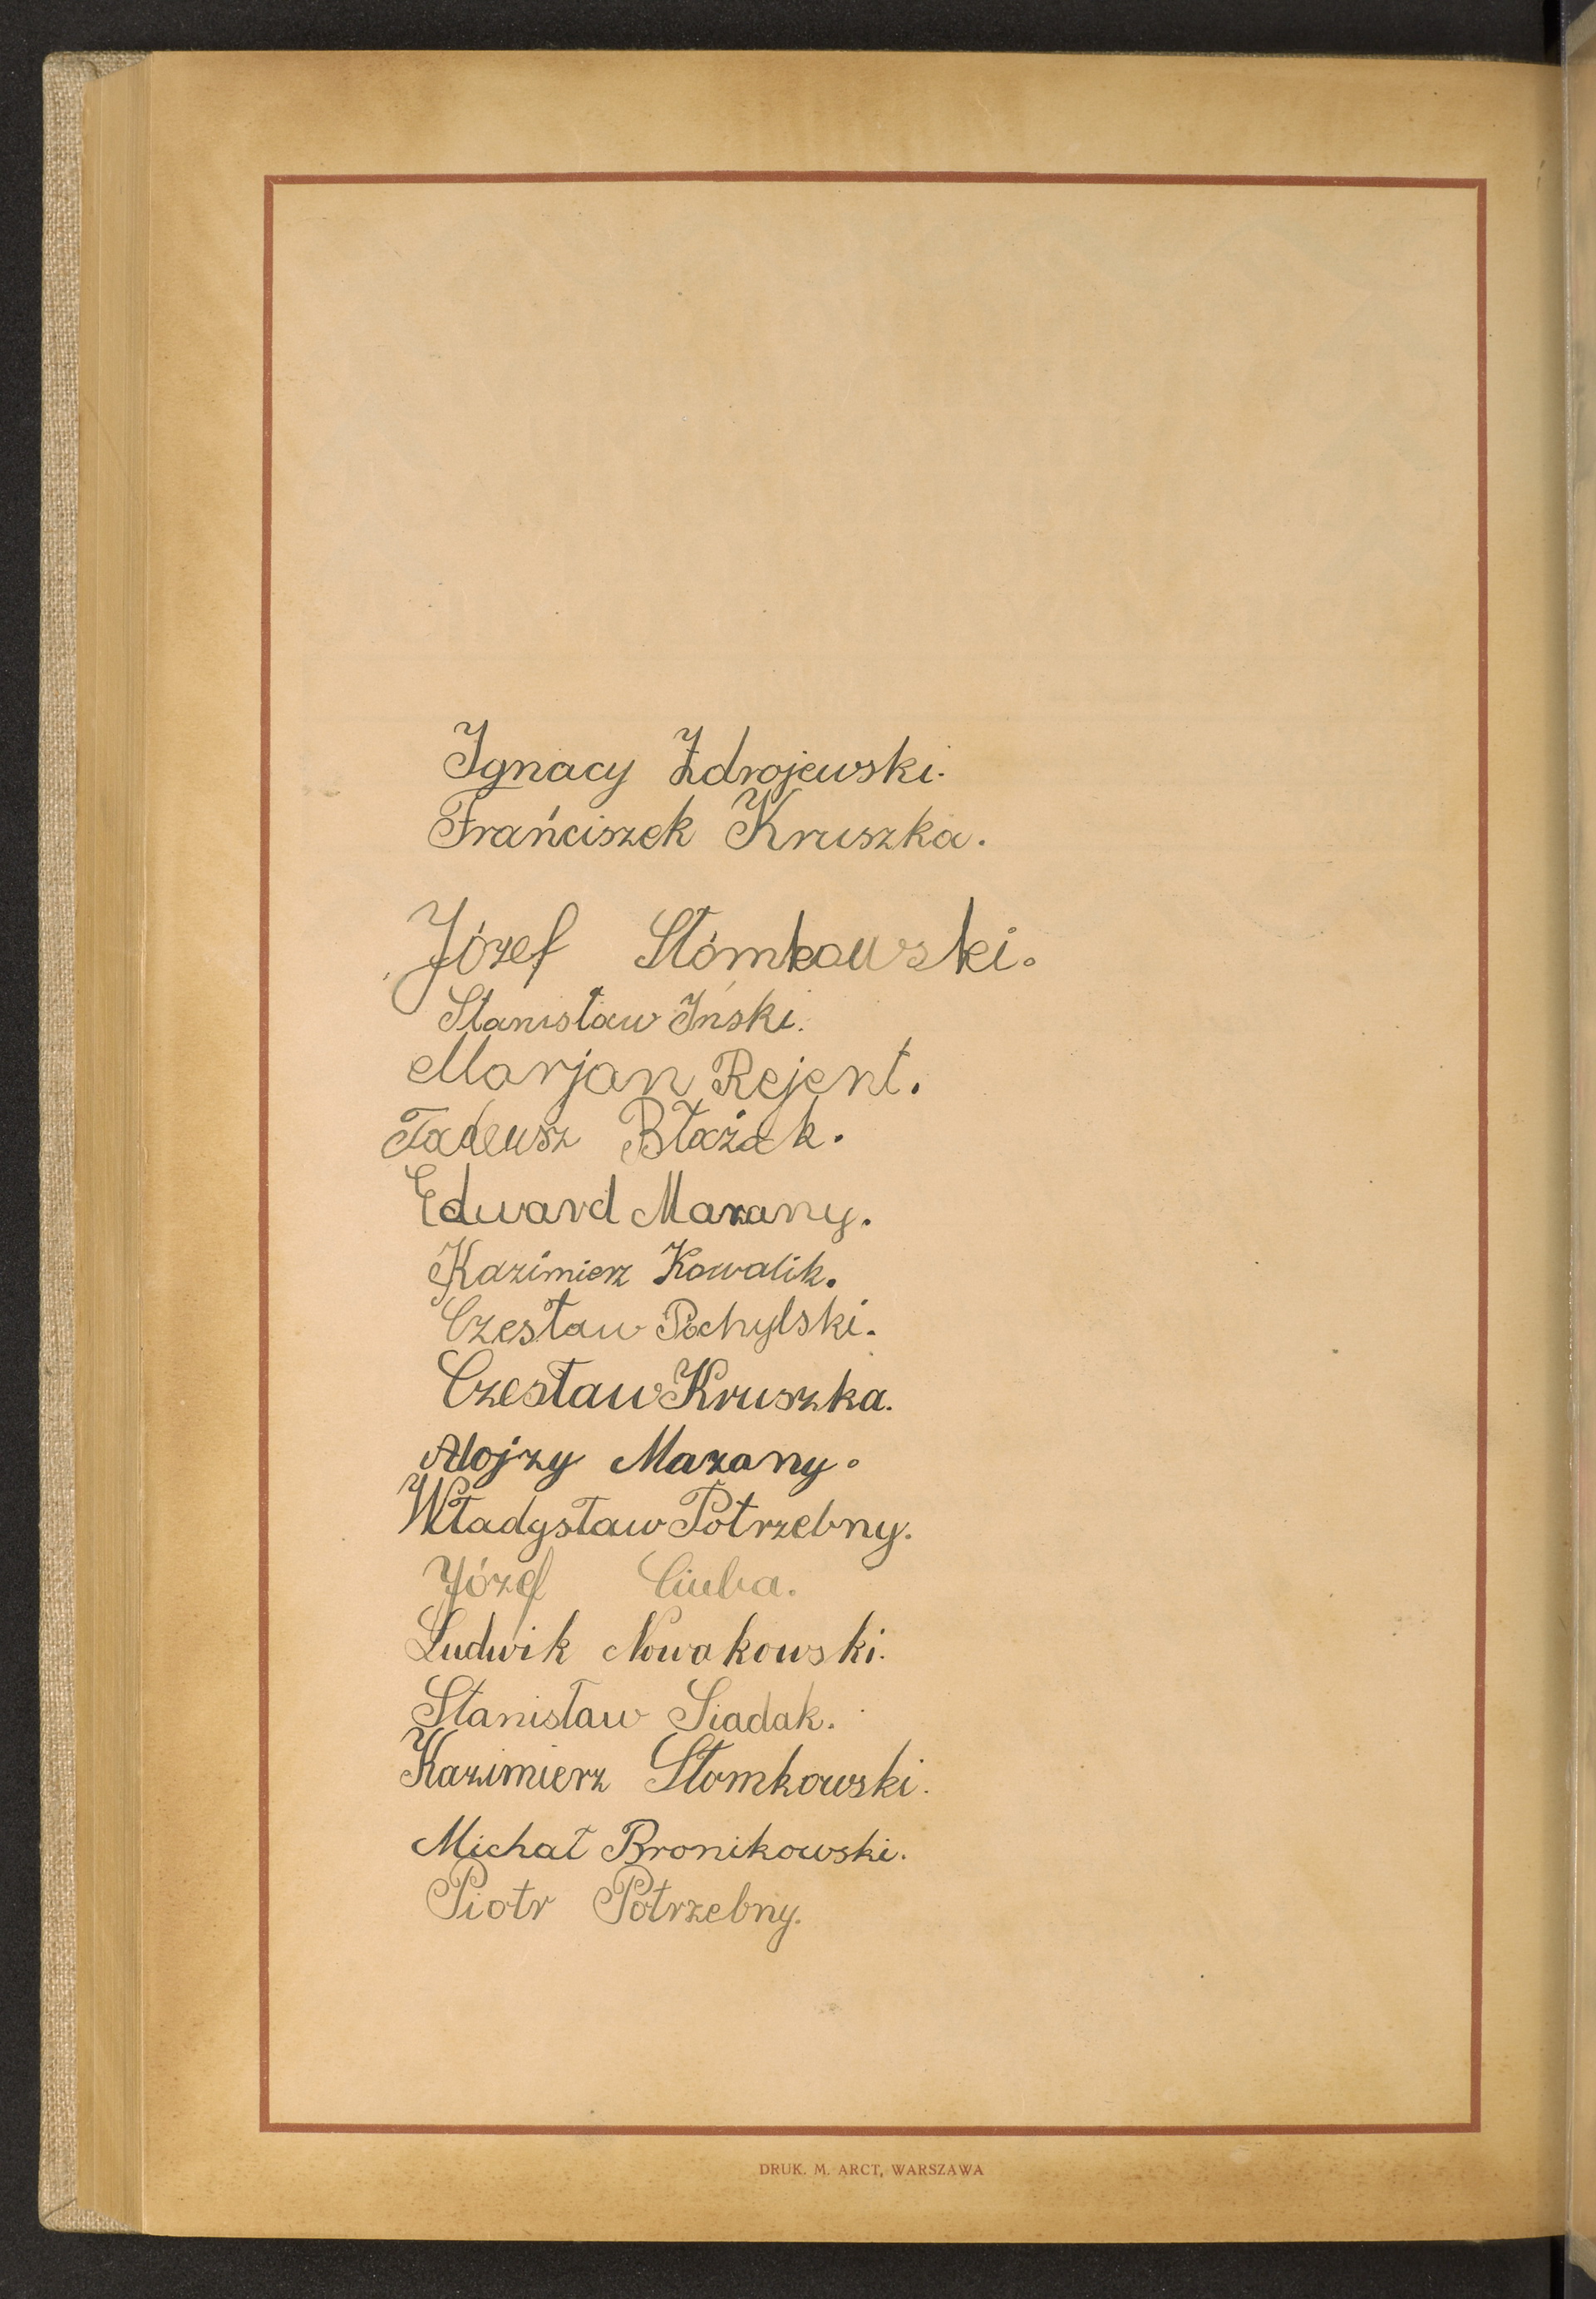 Ignacy Zdrojewski.
Frańciszek Kruszka.
Józef Słómkowski.
Stanisław Iński.
Marjan Rejent.
Tadeusz Błażak.
Edward Mazany.
Kazimierz Kowalik.
Czesław Pochylski.
Czesław Kruszka.
Alojzy Mazany.
Władysław Potrzebny.
Józef Ciuba.
Ludwik Nowakowski.
Stanisław Siadak.
Kazimierz Słomkowski.
Michał Bronikowski.
Piotr Potrzebny.
DRUK. M. ARCT, WARSZAWA